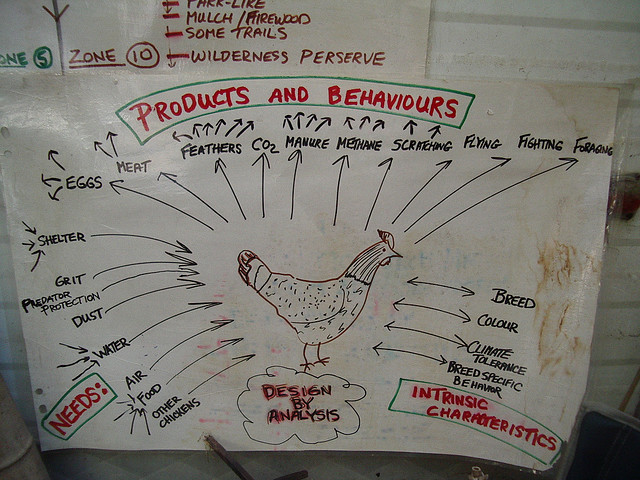 PARK-LIKE
MULCH / FIREWOOD
SOME TRAILS
ONE 5 ZONE 10 WILDERNESS PERSERVE
PRODUCTS AND BEHAVIOURS
EGGS
MEAT
FEATHERS
CO2
MANURE
METHANE
SCRATCHING
FLYING
FIGHTING
FORAGING
SHELTER
GRIT
PREDATOR
PROTECTION
DUST
WATER
AIR
FOOD
OTHER
CHICKENS
NEEDS:
BREED
COLOUR
CLIMATE
TOLERANCE
BREED SPECIFIC
BEHAVIOR
DESIGN
BY
ANALYSIS
INTRINSIC
CHARACTERISTICS